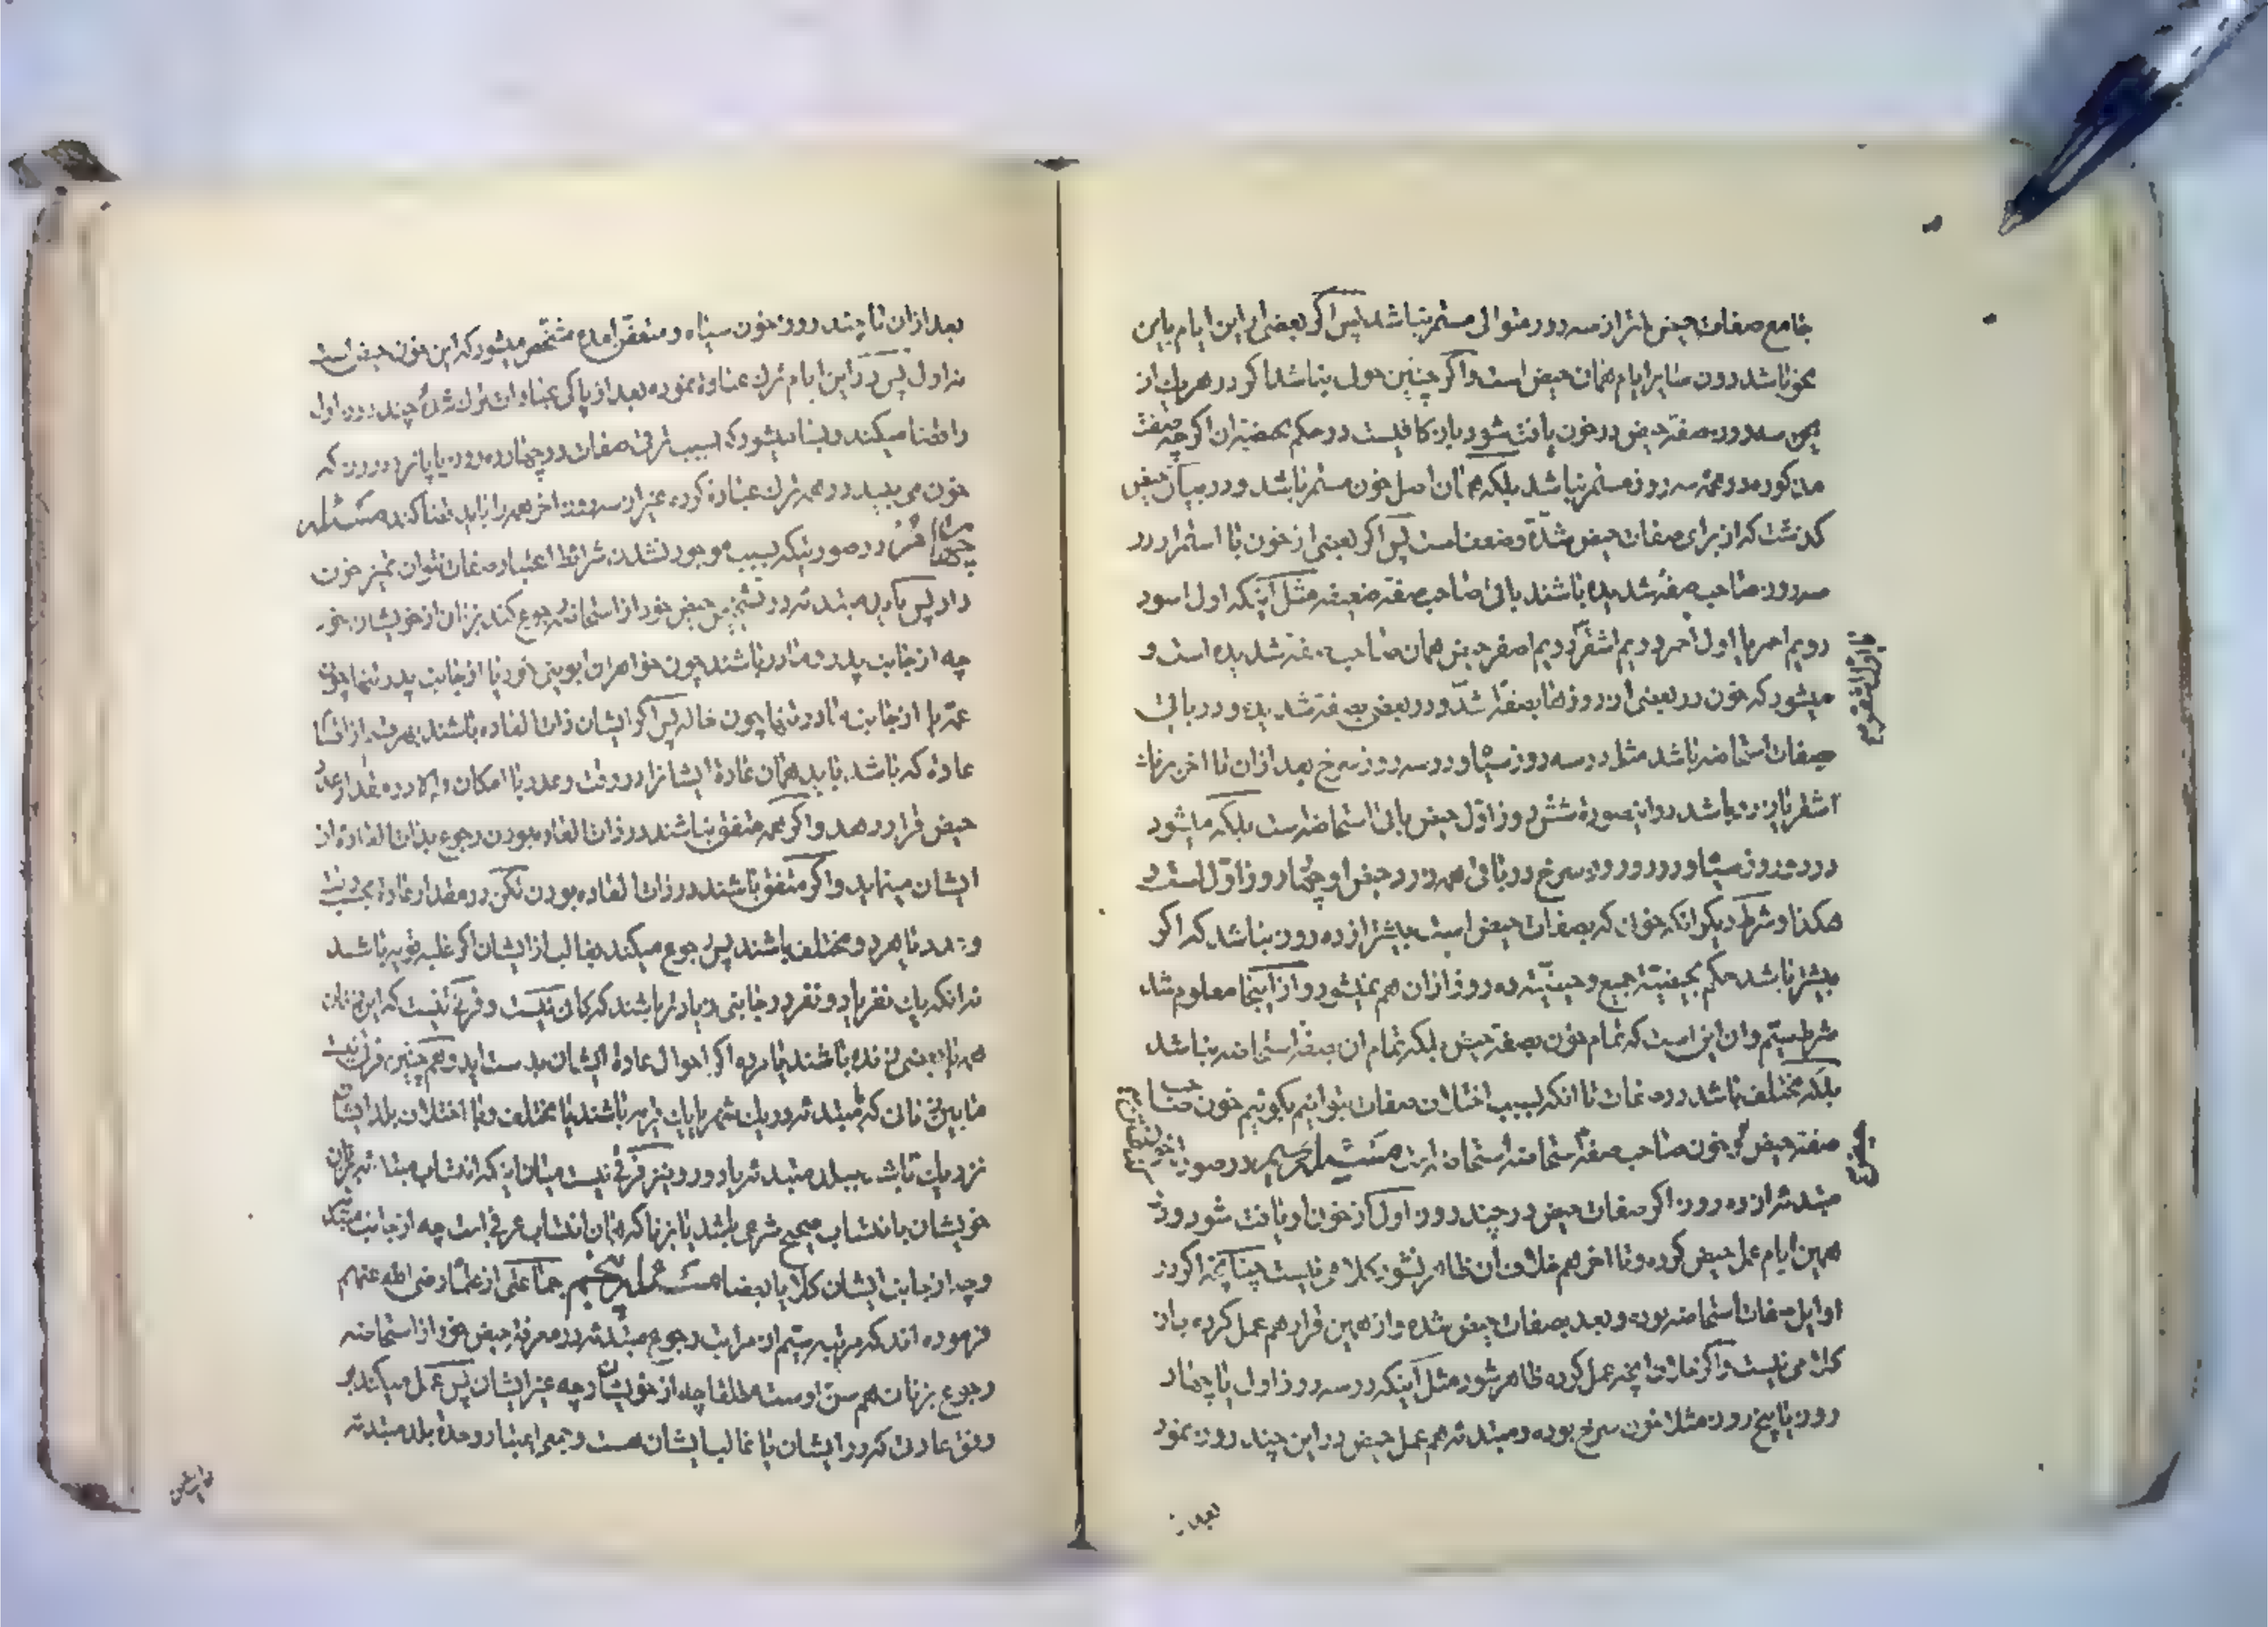 جامع صفات حیض باثر از سه روز متوالی مستمر نباشد پس اگر بعضی از این ایام باین
نحو باشد دون سایر ایام همان حیض است و اگر چنین حول نباشد اگر در هر یک از
این سه روز صفة حیض در خون یافت شود باز کافیست در حکم بحیضیة ان اگر چه صفت
مذکوره در همه سه روز مستمر نباشد بلکه همان اصل خون مستمر باشد و در میان حیض
گذشت که از برای صفات حیض شدة و ضعف است پس اگر بعضی از خون با استمرار در
سه روز صاحب صفة شدیده باشند باقی صاحب صفة ضعیفه مثل اینکه اول اسود
دویم احمر یا اول احمر دویم اشقر دویم اصفر حیض همان صاحب صفة شدیده است و
میشود که خون در بعضی از روزها بصفة اشد و در بعضی بصفة شدیده و در باقی
صفات استحاضه باشد مثل در سه روز سیاه و در سه روز سرخ بعد از ان تا اخر
اشقر یا زرد باشد در اینصورة شش روز اول حیض باقی استحاضه است بلکه میشود
در دو روز سیاه و در دو روز سرخ در باقی زرد حیض او چهار روز اول است و
هکذا و شرط دیگر انکه خون که بصفات حیض است بیشتر از ده روز نباشد که اگر
بیشتر باشد حکم بحیضیة جمیع و حیضیة ده روز از ان هم نمیشود و از اینجا معلوم شد
شرط سیم و ان این است که تمام خون بصفة حیض بلکه تمام ان بصفة استحاضه نباشد
بلکه مختلف باشد در صفات تا انکه بسبب اختلاف صفات بتوانیم بگوئیم خون صاحب
صفة حیض و خون صاحب صفة استحاضه استحاضه است مسئله سیم در صورة
مبتدئه از ده روز اگر صفات حیض در چند روز اول از خون او یافت شود و در
همین ایام عمل حیض کرده و تا اخر هم خلاف ان ظاهر نشود کلامی نیست چنانچه اگر در
اوایل صفات استحاضه بوده و بعد بصفات حیض شده و از همین قرار هم عمل کرده باز
کلامی نیست و اگر خلاف انچه عمل کرده ظاهر شود مثل اینکه در سه روز اول یا چهار
روز یا پنج روز مثلا خون سرخ بوده و مبتدئه هم عمل حیض در این چند روز نموده
بعد از
بعد از ان تا چند روز خون سیاه و متعفن امده مشخص میشود که این خون حیض است
نه اول پس در این ایام ترک عبادة نموده بعد از پاکی عبادات ترک شده چند روز اول
را قضا میکند و بسا میشود که بسبب ترقی صفات در چهارده روز یا پانزده روز که
خون می بیند در همه ترک عبادة کرده غیر از سه روز اخر همه را باید قضا کند مسئله
چهارم در صورتیکه بسبب موجود نشدن شرائط اعتبار صفات نتوان تمیز خون
داد پس باید مبتدئه در تشخیص حیض خود از استحاضه رجوع کند بزنان از خویشان خود
چه از جانب پدر و مادر باشند چون خواهران ابوینی خود یا از جانب پدر تنها چون
عمه یا از جانب مادر تنها چون خاله پس اگر ایشان ذات العاده باشند بهر قسم از اقسام
عادة که باشد باید همان عادة ایشانرا در وقت و عدد با امکان و الا در مقدار عدد
حیض قرار دهد و اگر همه متفق نباشند در ذات العاده بودن رجوع بذات العادة از
ایشان مینماید و اگر متفق باشند در ذات العاده بودن لکن در مقدار عادة بحسب وقت
و عدد یا هر دو مختلف باشند پس رجوع میکند بغالب از ایشان اگر غلبه قویه باشد
نه انکه یک نفر یا دو نفر در جانبی زیادتر باشند که کافی نیست و فرقی نیست که این زنان
همه یا بعضی زنده باشند یا مرده اگر احوال عادة ایشان بدست اید و همچنین فرقی نیست
ما بین زنانی که با مبتدئه در یک شهر یا یک قریه باشند یا مختلف و با اختلاف بلد ایشان
نزدیک باشد ببلد مبتدئه یا دور و نیز فرقی نیست میان اینکه انتساب مبتدئه
خویشان بانتساب صحیح شرعی باشد یا بزنا که همان انتساب عرفی است چه از جانب مبتدئه
و چه از جانب ایشان کلا یا بعضا مسئله پنجم جماعتی از علماء رضی الله عنهم
فرموده اند که مرتبه سیم از مراتب رجوع مبتدئه در معرفة حیض خود از استحاضه
رجوع بزنان هم سن اوست مطلقا چه از خویشان و چه غیر ایشان پس عمل میکند بر
وفق عادتی که در ایشان یا غالب ایشان هست و جمعی اعتبار وحدة بلد مبتدئه